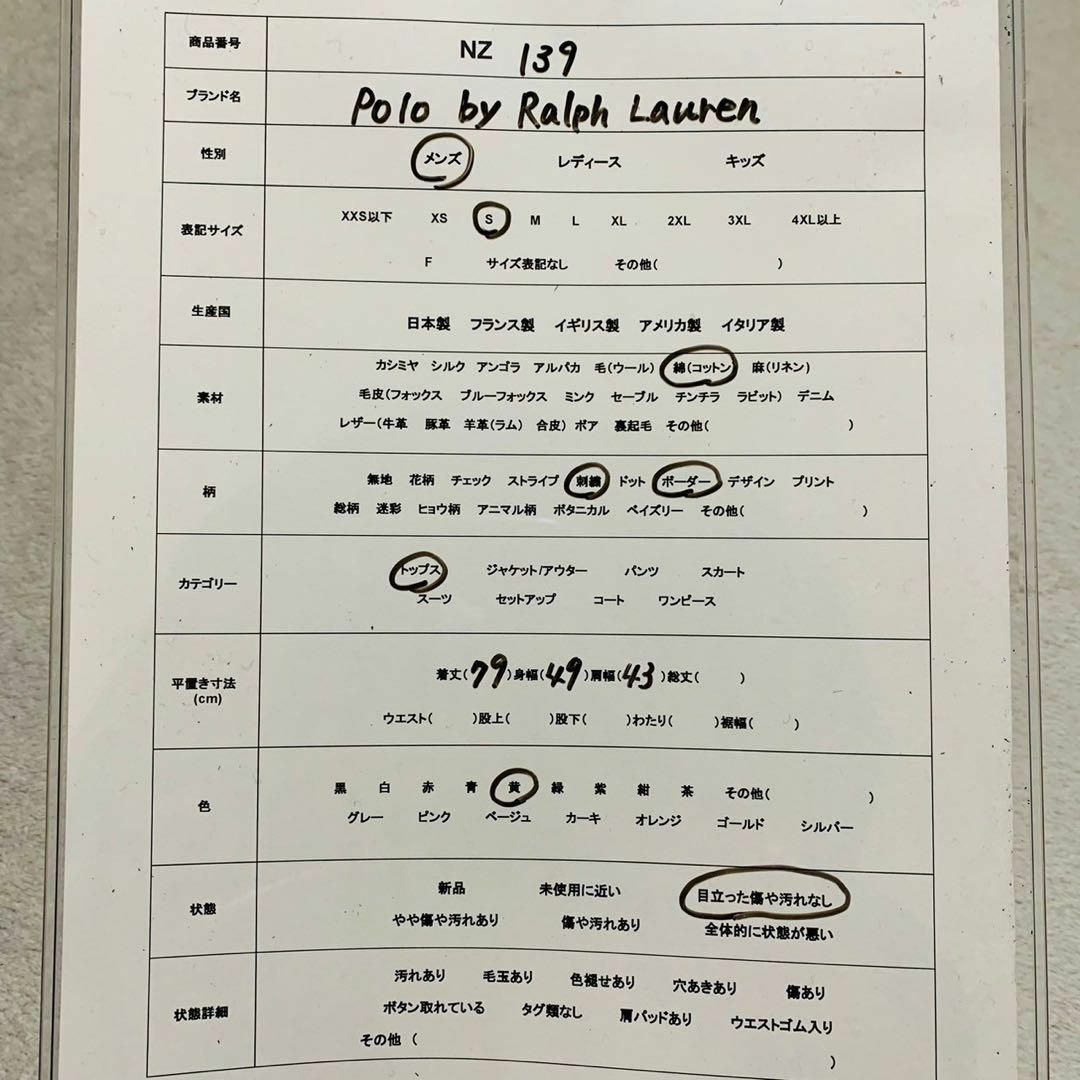 商品番号 NZ 139
ブランド名 Polo by Ralph Lauren
性別 メンズ レディース キッズ
XXS以下 XS S M L XL 2XL 3XL 4XL以上
表記サイズ
F サイズ表記なし その他( )
生産国 日本製 フランス製 イギリス製 アメリカ製 イタリア製
カシミヤ シルク アンゴラ アルパカ 毛(ウール) 綿(コットン) 麻(リネン)
素材 毛皮(フォックス ブルーフォックス ミンク セーブル チンチラ ラビット) デニム
レザー(牛革 豚革 羊革(ラム) 合皮) ボア 裏起毛 その他( )
無地 花柄 チェック ストライプ 刺繍 ドット ボーダー デザイン プリント
柄
総柄 迷彩 ヒョウ柄 アニマル柄 ボタニカル ペイズリー その他( )
トップス ジャケット/アウター パンツ スカート
カテゴリー
スーツ セットアップ コート ワンピース
着丈(79)身幅(49)肩幅(43)総丈( )
平置き寸法
(cm)
ウエスト( )股上( )股下( )わたり( )裾幅( )
黒 白 赤 青 黄 緑 紫 紺 茶 その他( )
色
グレー ピンク ベージュ カーキ オレンジ ゴールド シルバー
新品 未使用に近い 目立った傷や汚れなし
状態
やや傷や汚れあり 傷や汚れあり 全体的に状態が悪い
汚れあり 毛玉あり 色褪せあり 穴あきあり 傷あり
状態詳細 ボタン取れている タグ類なし 肩パッドあり ウエストゴム入り
その他 ( )